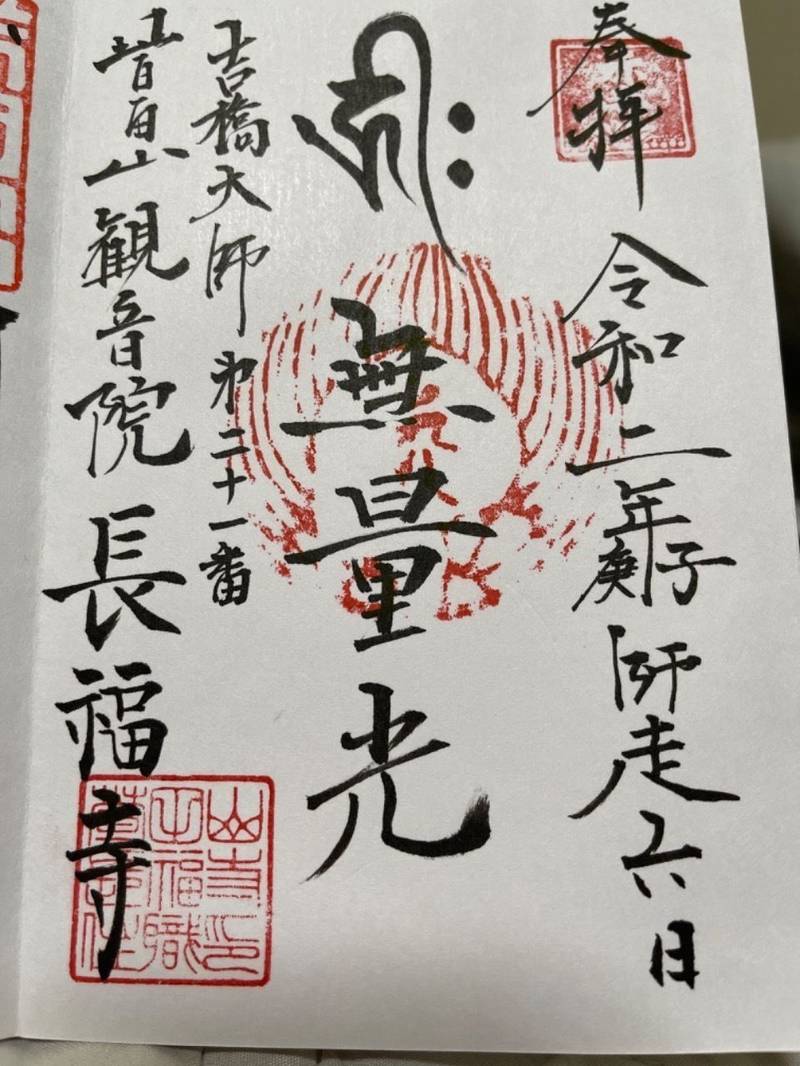 奉拝
令和二年庚子師走六日
ह्रीः
無量光
吉橋大師第二十一番
山観音院長福寺